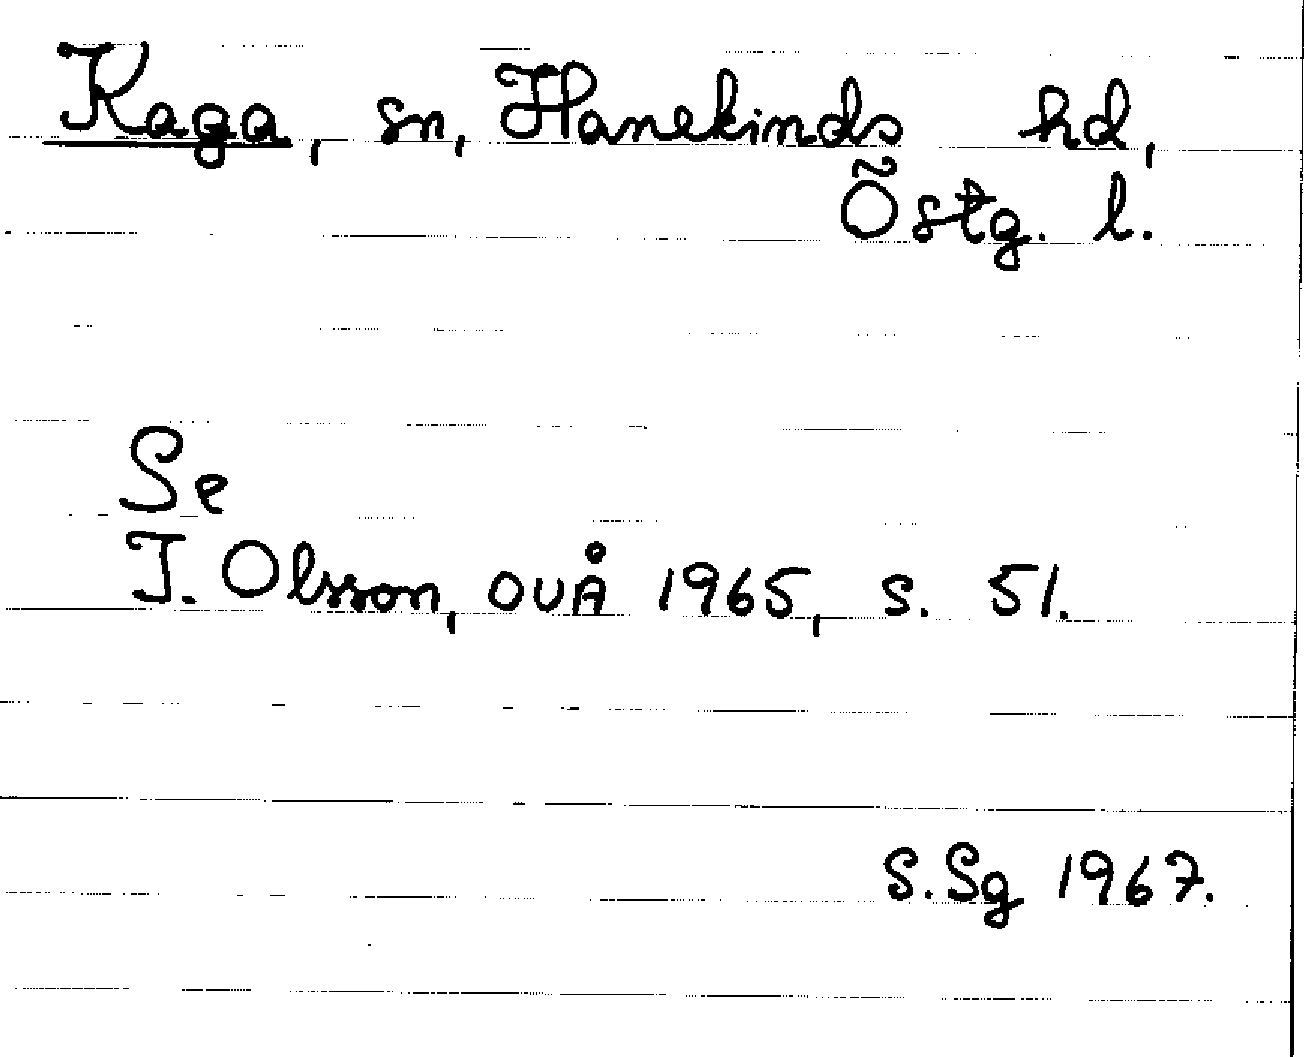 Kaga, sn, Hanekinds hd,
Östg. l.
Se
I. Olsson, OUÅ 1965, s. 51.
S.Sg 1967.